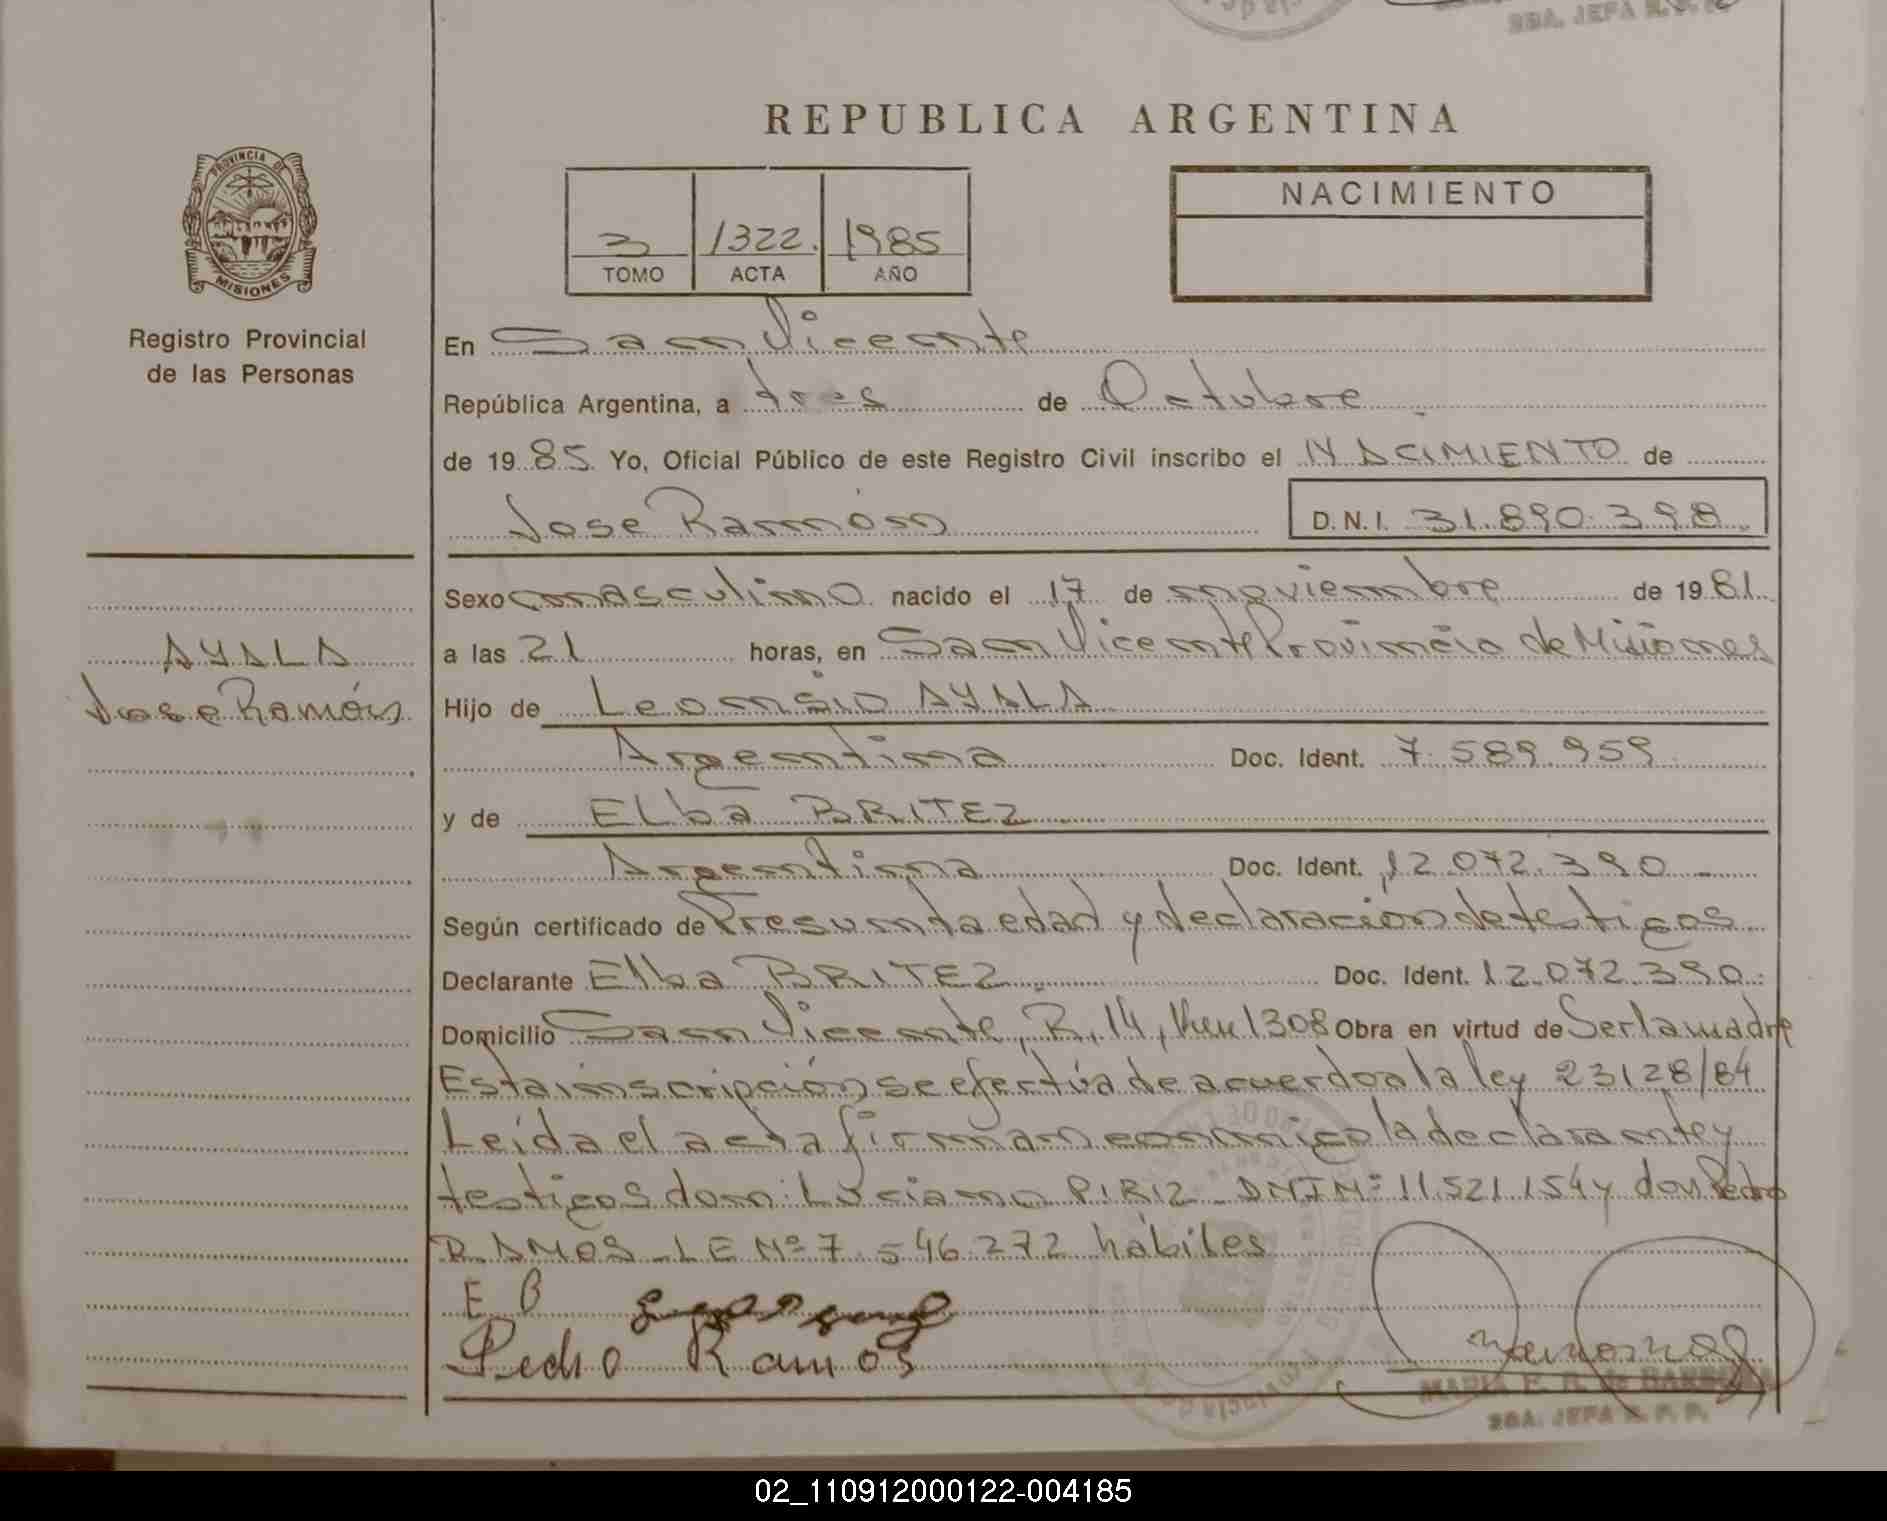 SRA. JEFA R. P. P.
REPUBLICA ARGENTINA
PROVINCIA DE
MISIONES
Registro Provincial
de las Personas
3 1322. 1985
TOMO ACTA AÑO
NACIMIENTO
En San Vicente
República Argentina, a tres de Octubre
de 19 85 Yo, Oficial Público de este Registro Civil inscribo el NACIMIENTO de
Jose Ramón D.N.I. 31.890.398
AYALA
Jose Ramón
Sexo masculino nacido el 17 de noviembre de 19 81
a las 21 horas, en San Vicente Provincia de Misiones
Hijo de Leonsio AYALA
Argentina Doc. Ident. 7.589.959
y de Elba BRITEZ
Argentina Doc. Ident. 12.072.390
Según certificado de Presunta edad y declaracion de testigos
Declarante Elba BRITEZ Doc. Ident. 12.072.390
Domicilio San Vicente, R. 14, Km 1308 Obra en virtud de Ser la madre
Esta inscripción se efectúa de acuerdo a la ley 23128/84
Leida el acta firman conmigo la declarante y
testigos don: Luciano PIRIZ DNI Nº 11.521.154 y don Pedro
RAMOS LE Nº 7.546.272 hábiles
E B
Pedro Ramos
SRA. JEFA R. P. P.
02_110912000122-004185